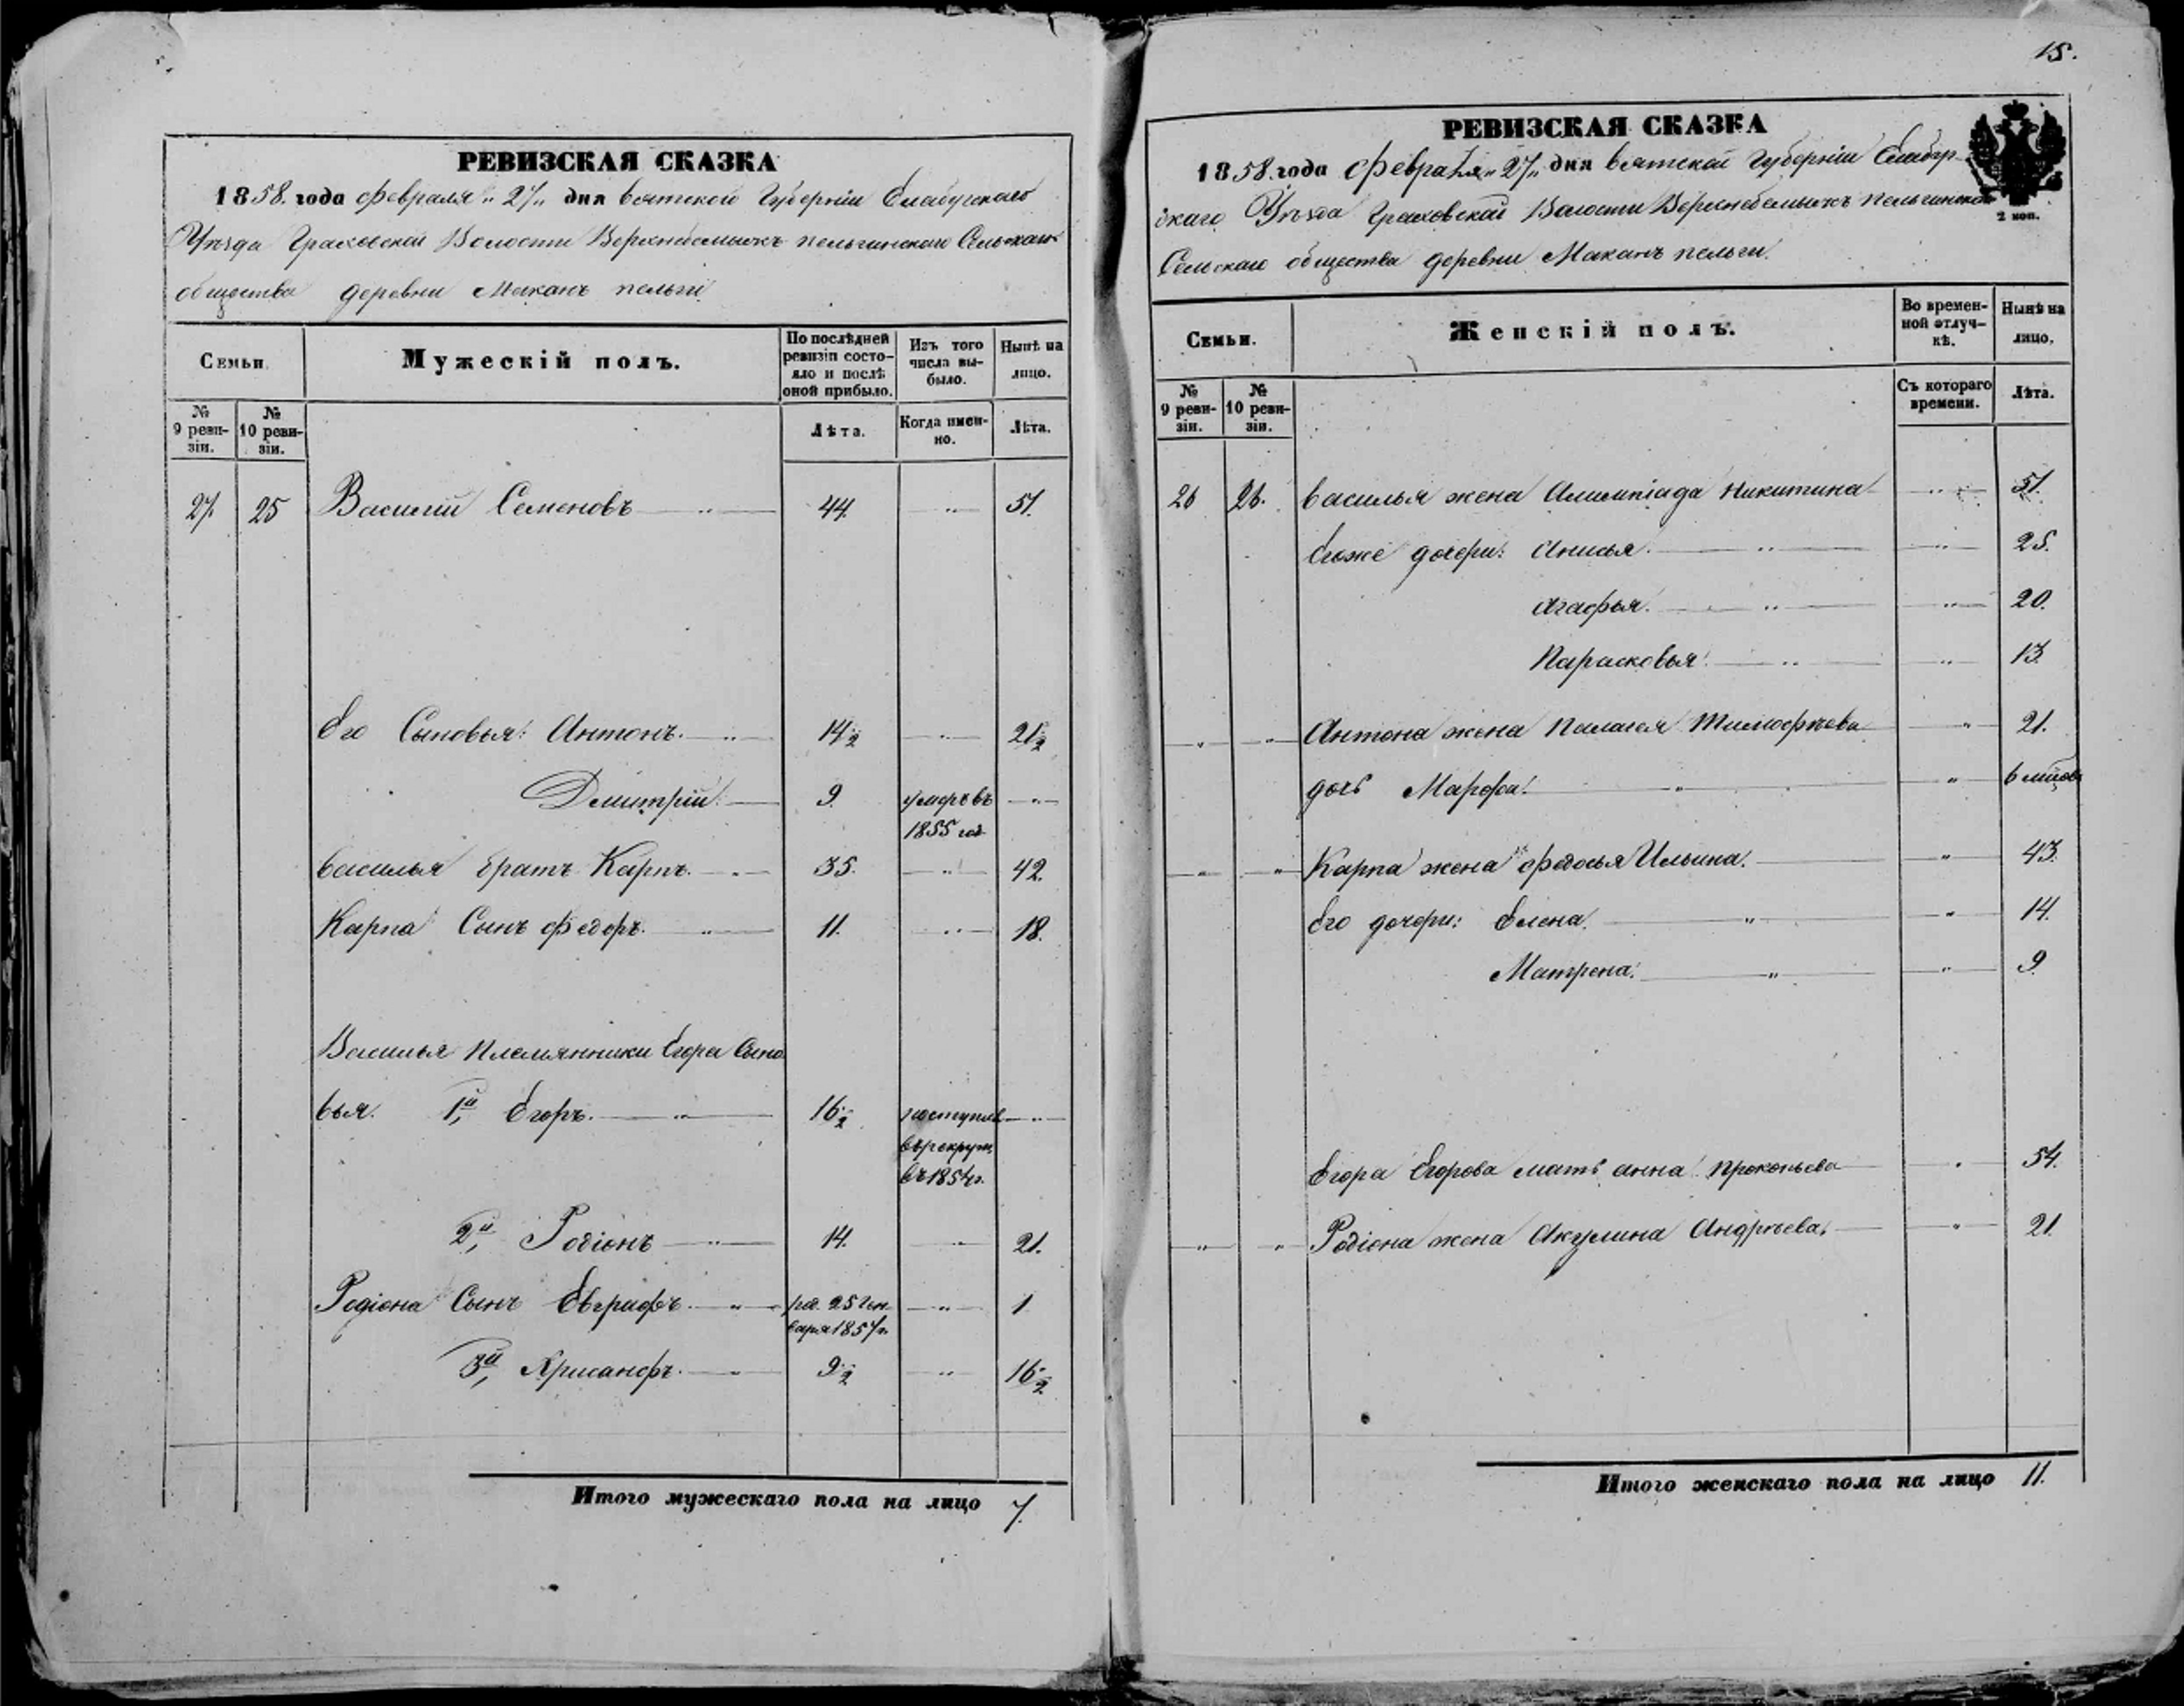 15.
РЕВИЗСКАЯ СКАЗКА
1858. года Февраля „27„ дня Вятской Губерніи Елабугскаго
Уѣзда Граховской Волости Верхнебемыжъ пельгинскаго Сельскаго
общества деревни Маканъ пельги
Семьи. Мужескій полъ. По послѣдней ревизіи состояло и послѣ оной прибыло. Изъ того числа выбыло. Нынѣ на лицо.
№ 9 ревизіи. № 10 ревизіи. Лѣта. Когда именно. Лѣта.
27. 25 Василій Семеновъ 44. „ 51.
Его Сыновья: Антонъ. „ 14½ „ 21½
Дмитрій. 9. умеръ въ „
1855 год
Василья братъ Карпъ. „ 35. „ 42.
Карпа Сынъ Федоръ. „ 11. „ 18.
Василья Племянники Егора Сыно
вья. 1й, Егоръ. „ 16½ поступил „
въ рекрут
въ 1854г.
2й, Родіонъ „ 14. „ 21.
Родіона Сынъ Евграфъ. „ ро. 25 Ген „ 1
варя 1857г.
3й, Хрисанфъ. „ 9½ „ 16½
Итого мужескаго пола на лицо 7.
РЕВИЗСКАЯ СКАЗКА
1858. года Февраля „27„ дня Вятской Губерніи Елабуг-
скаго Уѣзда Граховской Волости Верхнебемыжъ пельгинскаго
2 коп.
Сельскаго общества деревни Маканъ пельги.
Семьи. Женскій полъ. Во временной отлучкѣ. Нынѣ на лицо.
№ 9 ревизіи. № 10 ревизіи. Съ котораго времени. Лѣта.
26 26. Василья жена Алимпіада Никитина „ 51.
Егоже дочери: Анисья. „ „ 25.
Агафья. „ „ 20.
Парасковья. „ „ 13.
„ „ Антона жена Палагея Тимофѣева „ 21.
дочь Марфа. „ „ 6
„ „ Карпа жена Федосья Ильина. „ 43.
Его дочери: Елена. „ „ 14.
Матрена. „ „ 9.
Егора Егорова мать Анна Прокопьева „ 54.
„ „ Родіона жена Акулина Андрѣева. „ 21.
Итого женскаго пола на лицо 11.